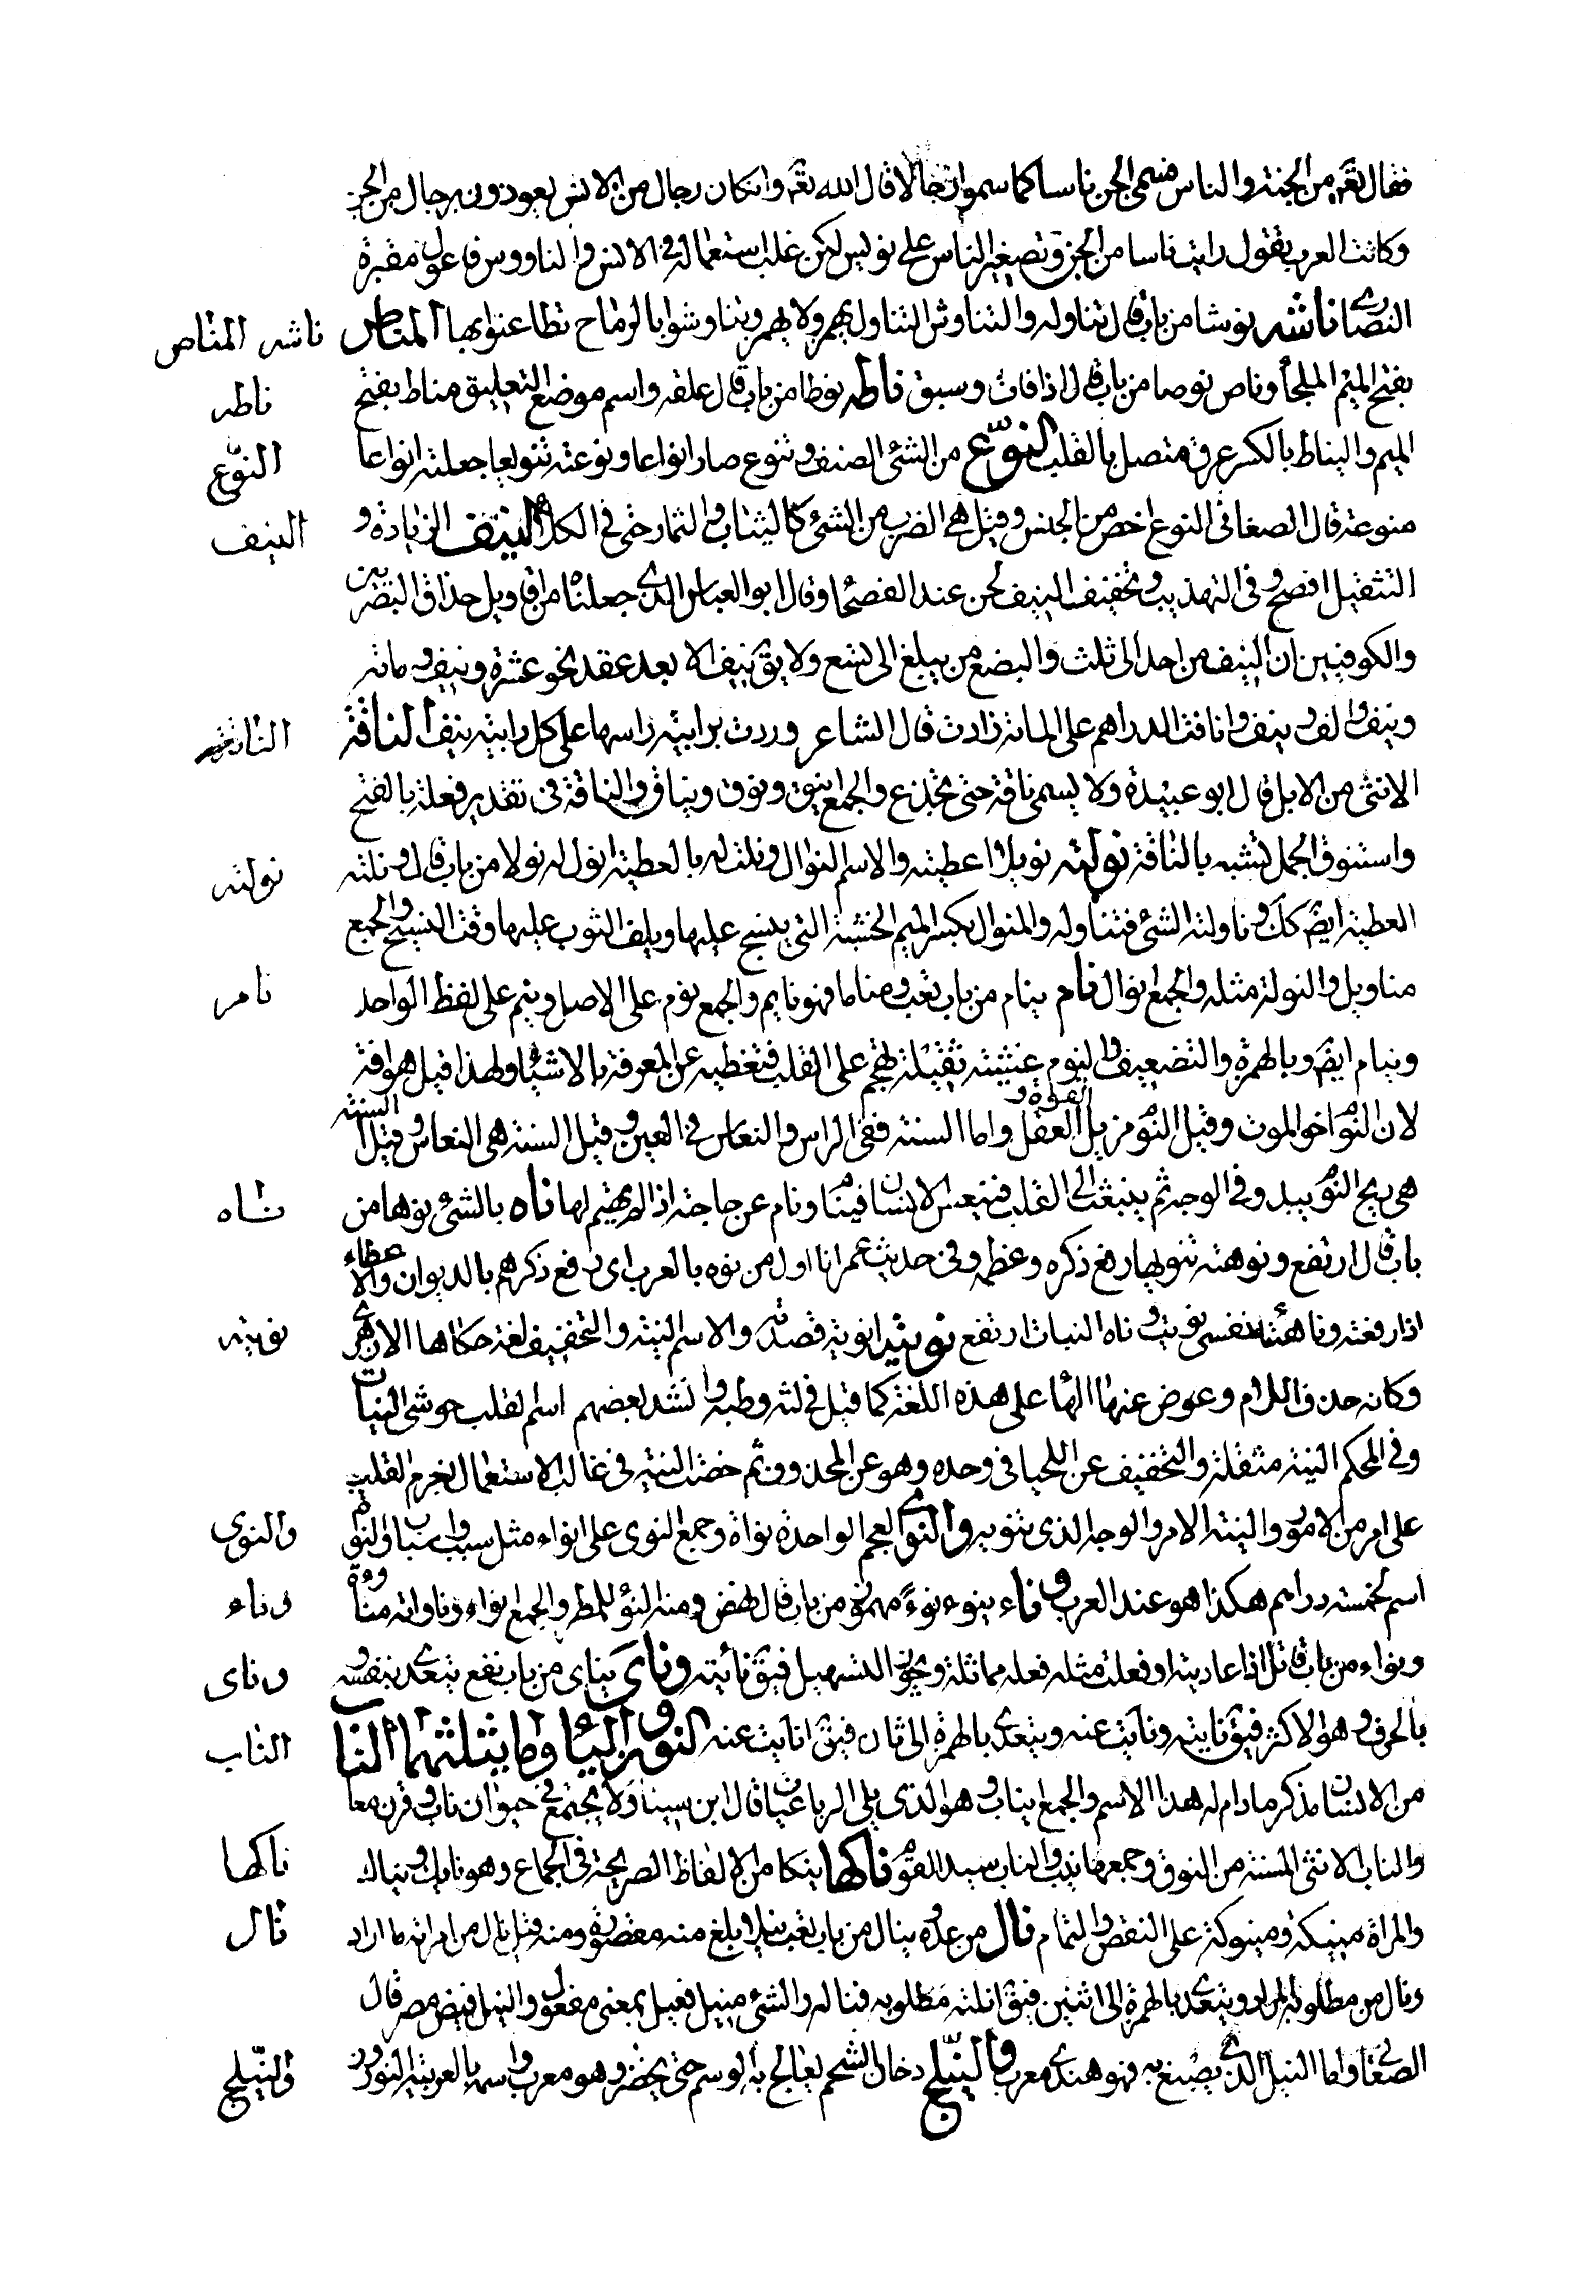 فقال تعٓم من الجنة والناس فسمى الجن ناسا كما سموا رجالا قال الله تعٓم وانه كان رجال من الانس يعوذون برجال من الجن
وكانت العرب تقول رايت ناسا من الجن وتصغير الناس على نويس لكن غلب استعماله فى الانس والناووس فاعول مقبرة
النصارى ناشه نوشا من باب قال تناوله والتناوش التناول يهمز ولا يهمز وتناوشوا بالرماح تطاعنوا بها المناص
ناشه المناص
بفتح الميم الملجأ وناص نوصا من باب قال اذا فات وسبق ناطه نوطا من باب قال علقه واسم موضع التعليق مناط بفتح
ناطه
الميم والنياط بالكسر عرق متصل بالقلب النوع من الشئ الصنف وتنوع صار انواعا ونوعته تنويعا جعلته انواعا
النوّع
منوعة قال الصغانى النوع اخص من الجنس وقيل هى الضرب من الشئ كالثياب والثمار حتى فى الكلام النيف الزيادة و
النيف
التثقيل افصح وفى التهذيب وتخفيف النيف لحن عند الفصحا وقال ابو العباس الذى حصلناه من اقاويل حذاق البصريين
والكوفيين ان النيف من احد الى ثلث والبضع من يبلغ الى تسع ولا يقٓ نيف الا بعد عقد نحو عشرة ونيف ومائة
ونيف والف ونيف وانافت الدراهم على المائة زادت قال الشاعر وردت برابية راسها على كل رابية نيف الناقة
الناقة
الانثى من الابل قال ابو عبيدة ولا يسمى ناقة حتى تجذع والجمع اينق ونوق ونياق والناقة فى تقدير فعلة بالفتح
واستنوق الجمل تشبه بالناقة نولته نويلا اعطيته والاسم النوال ونلت له بالعطية انول له نولا من باب قال ونلته
نولته
العطية ايضٓ كك وناولته الشئ فتناوله والمنوال بكسر الميم الخشبة التى ينسج عليها ويلف الثوب عليها وقت النسيج والجمع
مناويل والنولة مثله والجمع انوال نام ينام من باب تعب ومناما فهو نايم والجمع نوم على الاصل ونيم على لفظ الواحد
نام
ونيام ايضٓ وبالهمزة والتضعيف والنوم غشية ثقيلة تهجم على القلب فتغطيه عن المعرفة بالاشياء ولهذا قيل هو افة
لان النوم اخو الموت وقيل النوم مزيل القوة والعقل واما السنة ففى الراس والنعاس فى العين وقيل السنة هى النعاس وقيل السنة
هى ريح النوم يبدو فى الوجه ثم ينبعث الى القلب فينعس الانسان فينام ونام عن حاجته اذا لم يهتم لها ناه بالشئ نوها من
ناه
باب قال ارتفع ونوهته تنويها رفع ذكره وعظمه وفى حديث عمر انا اول من نوه بالعرب اى رفع ذكرهم بالديوان والاعطاء
اذا رفعته وناهت نفسى قويت وناه النبات ارتفع نويته انويه قصدته والاسم النية والتخفيف لغة حكاها الازهرى
نويته
وكانه حذف اللام وعوض عنها الها على هذه اللغة كما قيل فى ثبة وظبة وانشد بعضهم اصم القلب حوشى النيات
وفى المحكم النية مثقلة والتخفيف عن اللحيانى وحده وهو عن المحذوف ثم خصت النية فى غالب الاستعمال بعزم القلب
على امر من الامور والنية الامر والوجه الذى تنويه والنوى العجم الواحدة نواة وجمع النوى على انواء مثل سبب واسباب والنواة
والنوى
اسم لخمسة دراهم هكذا هو عند العرب وناء ينوء نوءً مهموز من باب قال نهض ومنه النوء للمطر والجمع انواء وناواته مناوءة
وناء
ونواء من باب قاتل اذا عاديته او فعلت مثل فعله مماثلة ويجوز التسهيل فيقٓ ناوَيته ونَاىَ يناى من باب نفع يتعدى بنفسه و
وناى
بالحرف وهو الاكثر فيقٓ نايته ونايت عنه ويتعدى بالهمزة الى ثان فيقٓ انايت عنه النون والياء وما يثلثهما الناب
الناب
من الانسان مذكر ما دام له هذا الاسم والجمع انياب وهو الذى يلى الرباعيات قال ابن سينا ولا يجتمع فى حيوان ناب وقرن معا
والناب الانثى المسنة من النوق وجمعها نيب والناب سيد القوم ناكها ينيكها من الالفاظ الصريحة فى الجماع وهو نايك ونياك
ناكها
والمراة منيكة ومنيوكة على النقص والتمام نال من عدوه ينال من باب تعب نيلا بلغ منه مقصوده ومنه قيل نال من امراته ما اراد
نال
ونال من مطلوبه المراد ويتعدى بالهمزة الى اثنين فيقٓ انلته مطلوبه فناله والشئ منيل فعيل بمعنى مفعول والنيل فيض مصر قال
الصغانى واما النيل الذى يصبغ به فهو هندى معرب والنيلج دخان الشحم يعالج به الوسم حتى يخضر وهو معرب واسمه بالعربية النوور
والنّيلج